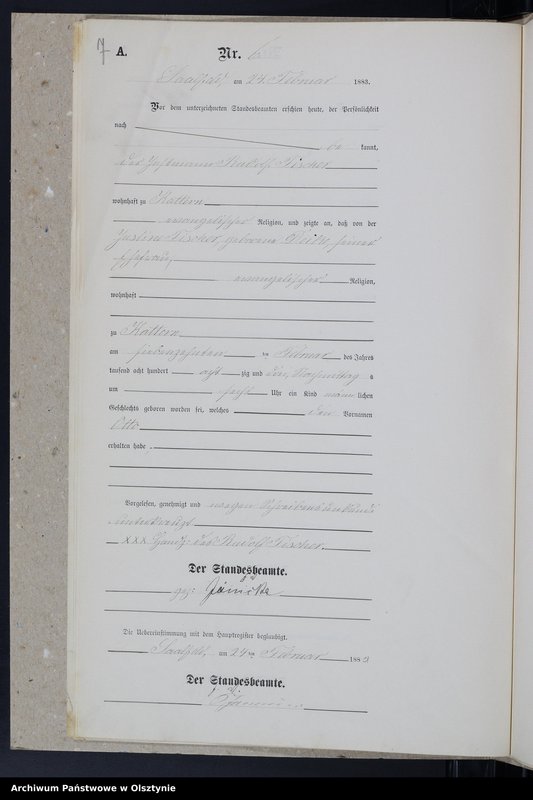 7 A. Nr.
Saalfeld, am 24. Februar 1883.
Vor dem unterzeichneten Standesbeamten erschien heute, der Persönlichkeit
nach
be kannt,
der Rudolf Fischer
wohnhaft zu Kattern
evangelischer Religion, und zeigte an, daß von der
Justine Fischer, geborene seiner
Ehefrau,
evangelischer Religion,
wohnhaft
zu Kattern
am siebenzehnten ten Februar des Jahres
tausend acht hundert acht zig und drei, Nachmittag s
um sechs Uhr ein Kind männ lichen
Geschlechts geboren worden sei, welches den Vornamen
Otto
erhalten habe.
Vorgelesen, genehmigt und wegen Schreibens
unterkreuzt
XXX Handz. des Rudolf Fischer.
Der Standesbeamte.
gez:
Die Uebereinstimmung mit dem Hauptregister beglaubigt.
Saalfeld, am 24 ten Februar 1883
Der Standesbeamte.
Archiwum Państwowe w Olsztynie